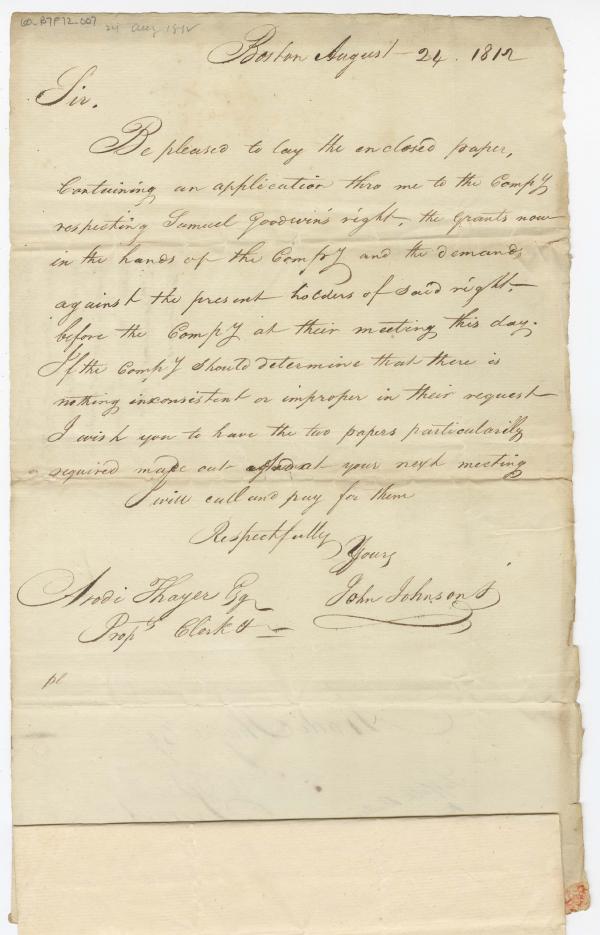 60_B7F12_007 24 Aug 1812
Boston August 24. 1812
Sir.
Be pleased to lay the enclosed paper,
Containing an application thro me to the Compy
respecting Samuel Goodwin's right, the grants now
in the hands of the Compy and the demands
against the present holders of said right,
before the Compy at their meeting this day.
If the Compy should determine that there is
nothing inconsistent or improper in their request
I wish you to have the two papers particularily
required made out at your next meeting
I will call and pay for them
Respectfully
Yours
Arodi Thayer Esq John Johnson
Props Clerk &